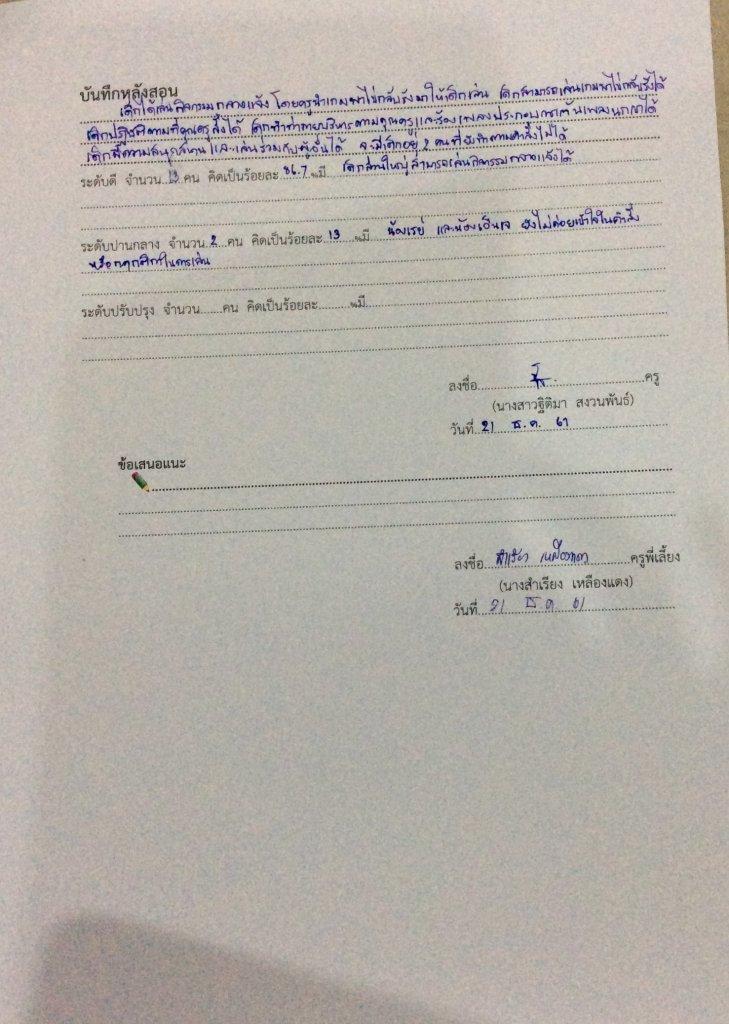 บันทึกหลังสอน
เด็กได้เล่นกิจกรรมกลางแจ้ง โดยครูนำเกมพาไข่กลับรังมาให้เด็กเล่น เด็กสามารถเล่นเกมพาไข่กลับรังได้
เด็กปฏิบัติตามที่คุณครูสั่งได้ เด็กทำท่ากายบริหารตามคุณครู และร้องเพลงประกอบการเต้นเพลงนกเขาได้
เด็กมีความสนุกสนาน และเล่นร่วมกับผู้อื่นได้ จะมีเด็กอยู่ 2 คนที่ยังทำตามคำสั่งไม่ได้
ระดับดี จำนวน 13 คน คิดเป็นร้อยละ 86.7 %มี เด็กส่วนใหญ่สามารถเล่นกิจกรรมกลางแจ้งได้
ระดับปานกลาง จำนวน 2 คน คิดเป็นร้อยละ 13 %มี น้องเรย์ และน้องเอ็นเจ ยังไม่ค่อยเข้าใจในคำสั่ง
หรือกฎกติกาในการเล่น
ระดับปรับปรุง จำนวน คน คิดเป็นร้อยละ %มี
ลงชื่อ ครู
(นางสาวฐิติมา สงวนพันธ์)
วันที่ 21 ธ.ค. 61
ข้อเสนอแนะ
ลงชื่อ สำเรียง เหลืองแดง ครูพี่เลี้ยง
(นางสำเรียง เหลืองแดง)
วันที่ 21 ธ.ค 61